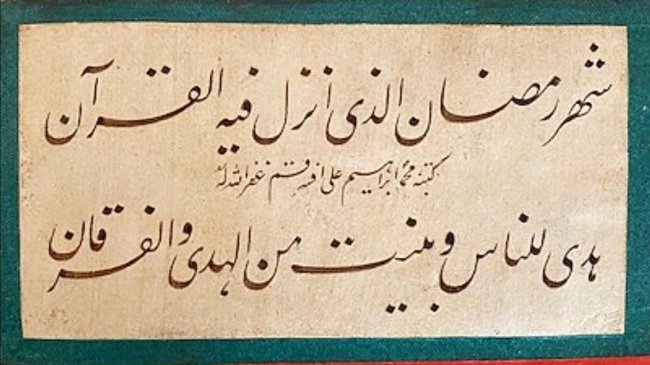 شهر رمضان الذی انزل فیه القرآن
کتبه محمد ابراهیم علی غفر الله له
هدی للناس و بینت من الهدی والفرقان